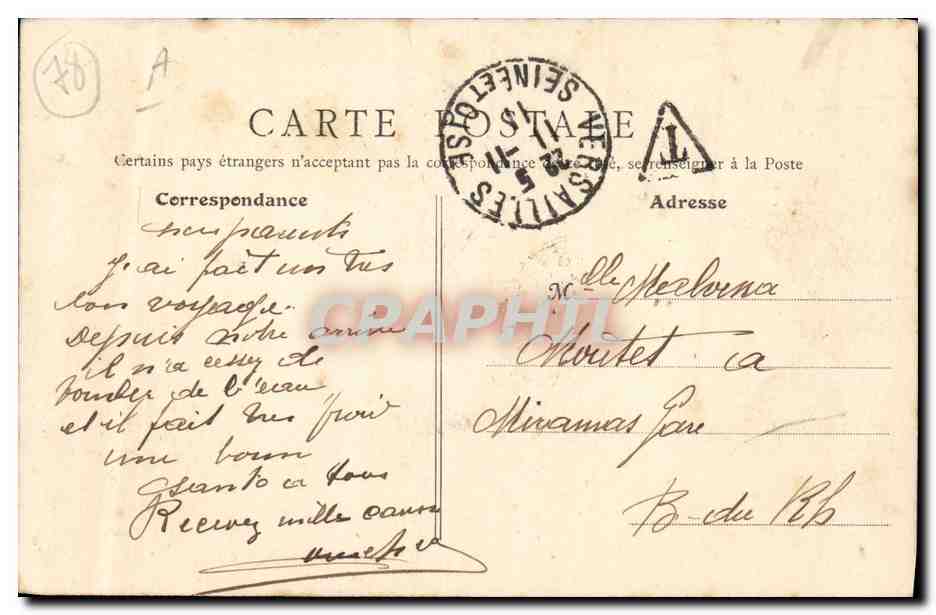 78
A
CARTE POSTALE
VERSAILLES SEINE ET OISE
11
5
T
Certains pays étrangers n'acceptant pas la correspondance se renseigner à la Poste
Correspondance
j'ai fait un très
bon voyage.
Depuis notre arrivée
il n'a cessez de
tomber de l'eau
et il fait très froid
une bonne
santé a tous
Recevez mille
Adresse
Mlle
Moutet a
Miramas Gare
B-du Rh
CRAPHIL